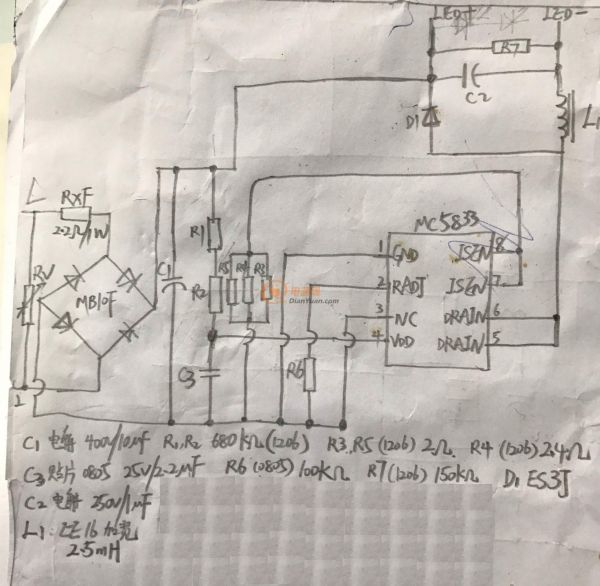 LED+ LED-
R7
C2
D1
L1
L
RXF
2.2Ω/1W
RV
MB10F
C1
R1
R2
R5 R4 R3
MC5833
1 GND ISEN 8
2 RADJ ISEN 7
3 NC DRAIN 6
4 VDD DRAIN 5
DianYuan.com
C3
R6
C1 电解 400V/10μF R1,R2 680KΩ(1206) R3,R5(1206)2Ω. R4(1206)2.4Ω
C3 贴片0805 25V/2.2μF R6(0805)100KΩ R7(1206)150KΩ D1 ES3J
C2 电解 250V/1μF
L1: EE16加壳
2.5mH